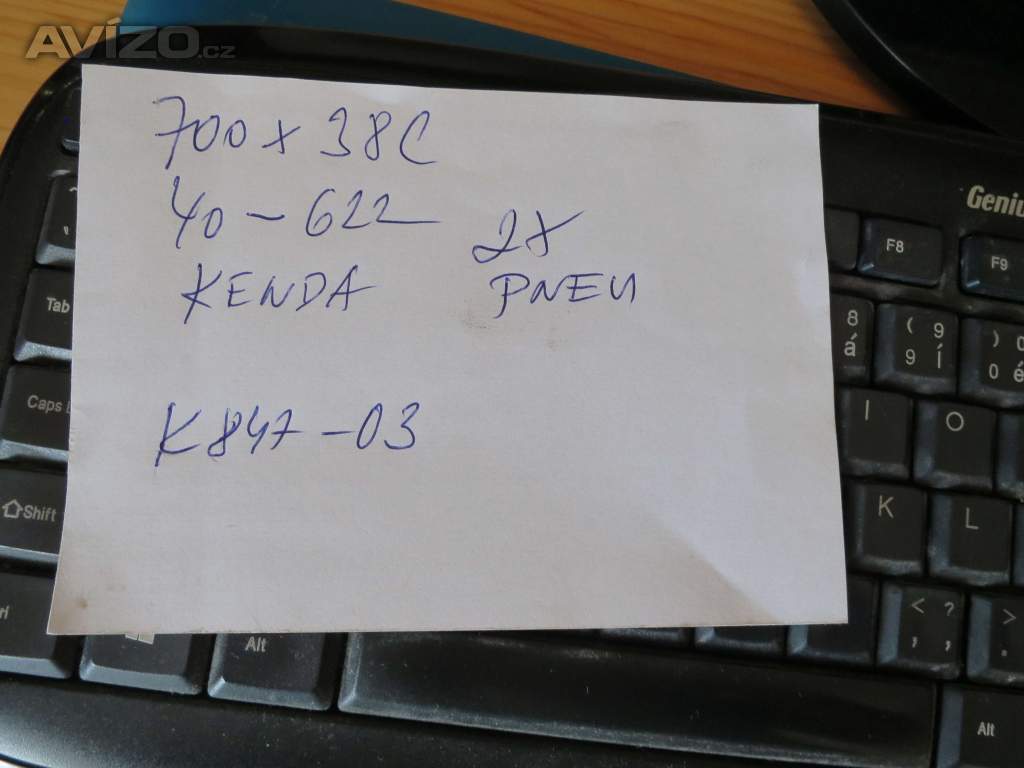 AVÍZO.cz
700 x 38C
40 - 622
KENDA
2x
PNEU
K847 - 03
Genius
F8
F9
Tab
8
á
( 9
9 Í
) 0
0 é
Caps
I
O
Shift
K
L
< ?
, ,
>
.
Alt
Alt